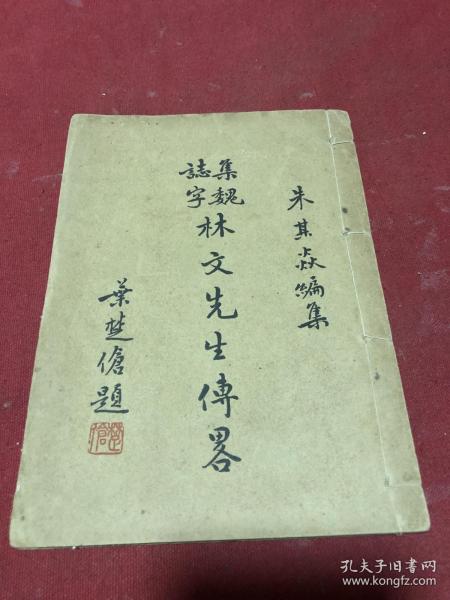 朱其焱編集
集魏
誌字
林文先生傳畧
葉楚傖題
孔夫子旧书网
www.kongfz.com